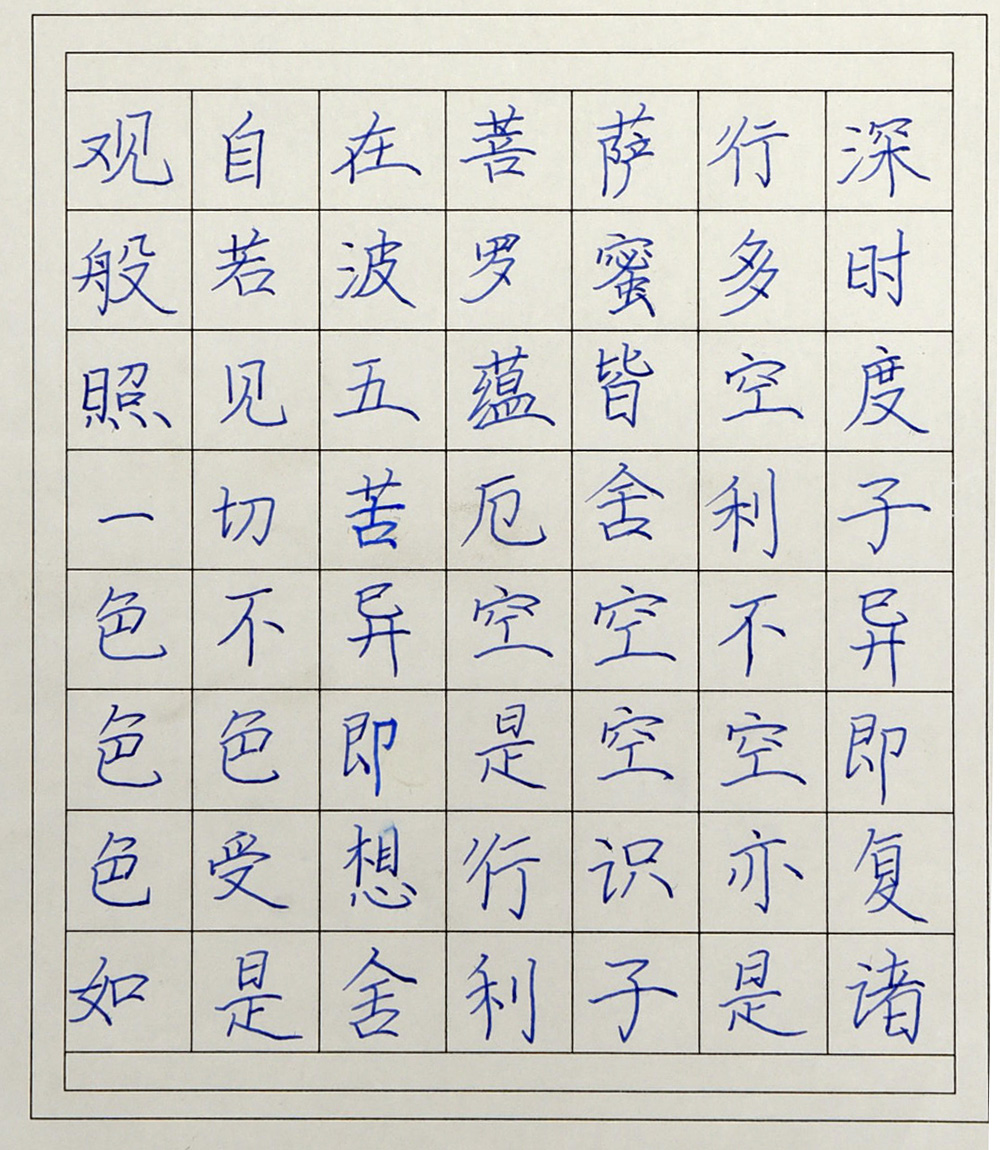 观自在菩萨行深
般若波罗蜜多时
照见五蕴皆空度
一切苦厄舍利子
色不异空空不异
色色即是空空即
色受想行识亦复
如是舍利子是诸